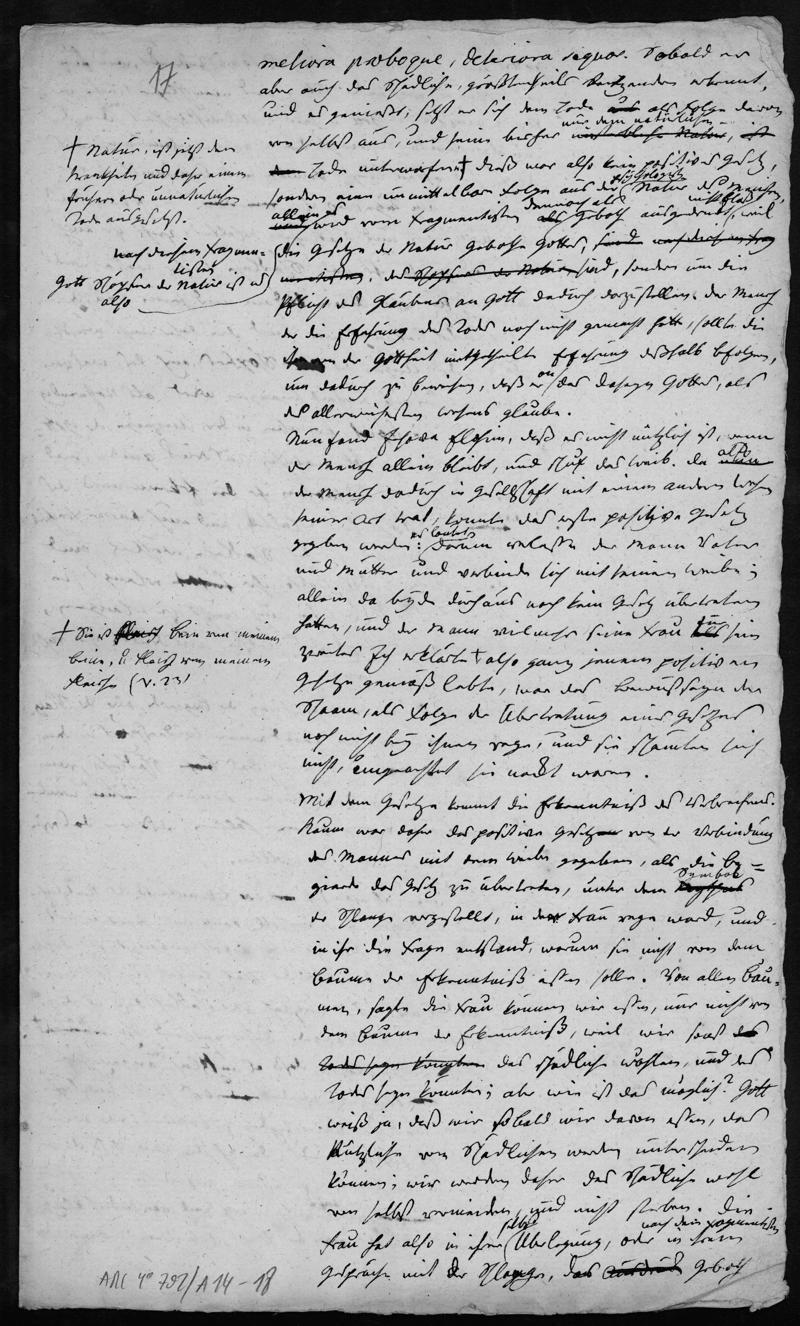 17
meliora proboque, deteriora sequor. Sobald er
aber auch das Schädliche, größtentheils Reitzende erkennt,
und es genießt, setzt er sich dem Tode als Folge davon
nur dem natürlichen
von selbst aus, und seine bisher
Tode unterworfen † dieß war also kein positives Gesetz,
sondern eine unmittelbare Folge aus der Natur des Menschen,
allein es dennoch als nicht bloß
wird vom Fragmentisten als Geboth ausgedrückt, weil
die Gesetze der Natur Gebothe Gottes, sind, sondern um die
Pflicht des Glaubens an Gott dadurch darzustellen. der Mensch
der die Erfahrung des Todes noch nicht gemacht hatte, sollte die
von der Gottheit mitgetheilte Erfahrung deßhalb befolgen,
um dadurch zu beweisen, daß er an das Daseyn Gottes, als
des allerweisesten Wesens glaube.
Nun fand Jehova Elohim, daß es nicht nützlich ist, wenn
der Mensch allein bleibt, und schuf das Weib. da also
der Mensch dadurch in Gesellschaft mit einem andern Wesen
seiner Art trat, konnte das erste positive Gesetz
es lautet
gegeben werden: darum verlasse der Mann Vater
und Mutter und verbinde sich mit seinem Weibe;
allein da beyde durchaus noch kein Gesetz übertreten
hatten, und der Mann vielmehr seine Frau für sein
zweites Ich erklärte † also ganz jenem positiven
Gesetze gemäß lebte, war das Bewußtseyn der
Schaam, als Folge der Übertretung eines Gesetzes
noch nicht bey ihnen rege, und sie schämten sich
nicht, ungeachtet sie nackt waren.
Mit dem Gesetze kommt die Erkenntniß des Verbrechens.
Kaum war daher das positive Gesetz von der Verbindung
des Mannes mit dem Weibe gegeben, als die Be=
gierde das Gesetz zu übertreten, unter dem Symbol
der Schlange vorgestellt, in der Frau rege ward, und
in ihr die Frage entstand, warum sie nicht von dem
Baume der Erkenntniß essen solle. Von allen Bäu=
men, sagte die Frau können wir essen, nur nicht von
dem Baume der Erkenntniß, weil wir sonst
das Schädliche wählen, und des
Todes seyn könnten; aber wie ist das möglich? Gott
weiß ja, daß wir sobald wir davon essen, das
Nützliche vom Schädlichen werden unterscheiden
können; wir werden daher das Schädliche wohl
von selbst vermeiden, und nicht sterben. Die
selbst nach dem Fragmentisten
Frau hat also in ihrer Überlegung, oder in ihrem
Gespräche mit der Schlange, das Geboth
† Natur, ist jetzt den
Krankheiten und daher einem
frühern oder unnatürlichen
Tode ausgesetzt.
nach diesem Fragmen=
tisten
Gott Schöpfer der Natur ist
also
† Sie ist Bein von meinem
Beine, u Fleisch von meinem
Fleische (V. 23)
ARC 4° 792/A14-18